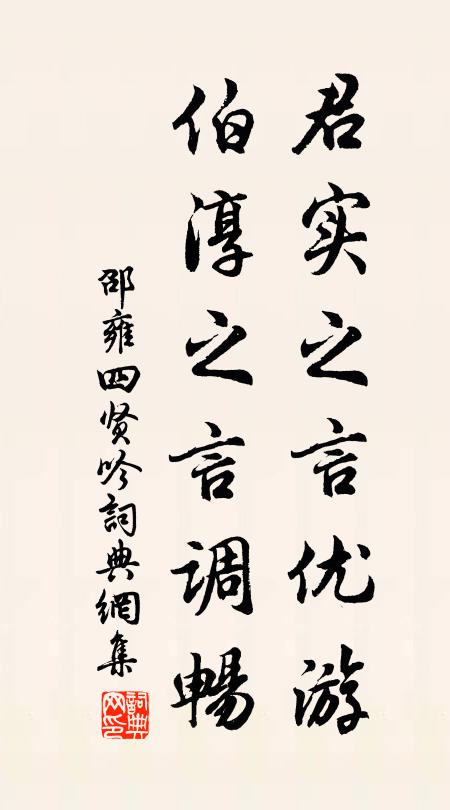 君实之言优游
伯淳之言调畅
邵雍四贤吟詞典網集
詞典网印